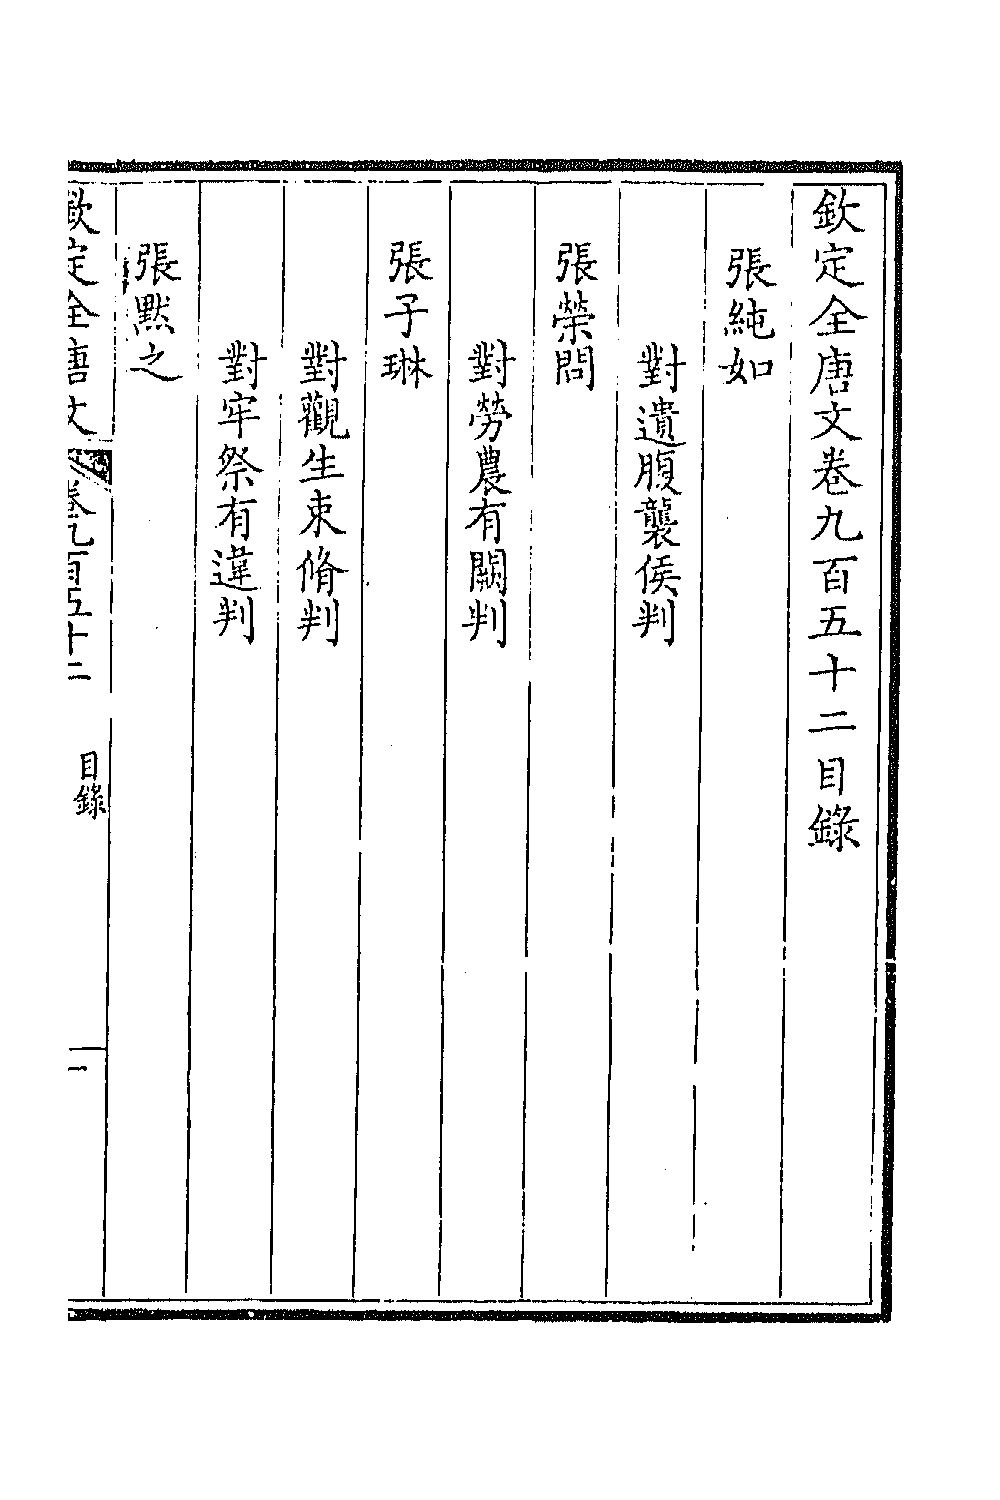 欽定全唐文卷九百五十二目錄
張純如
對遺腹襲侯判
張榮問
對勞農有闕判
張子琳
對觀生束脩判
對牢祭有違判
張默之
欽定全唐文 卷九百五十二 目錄 一